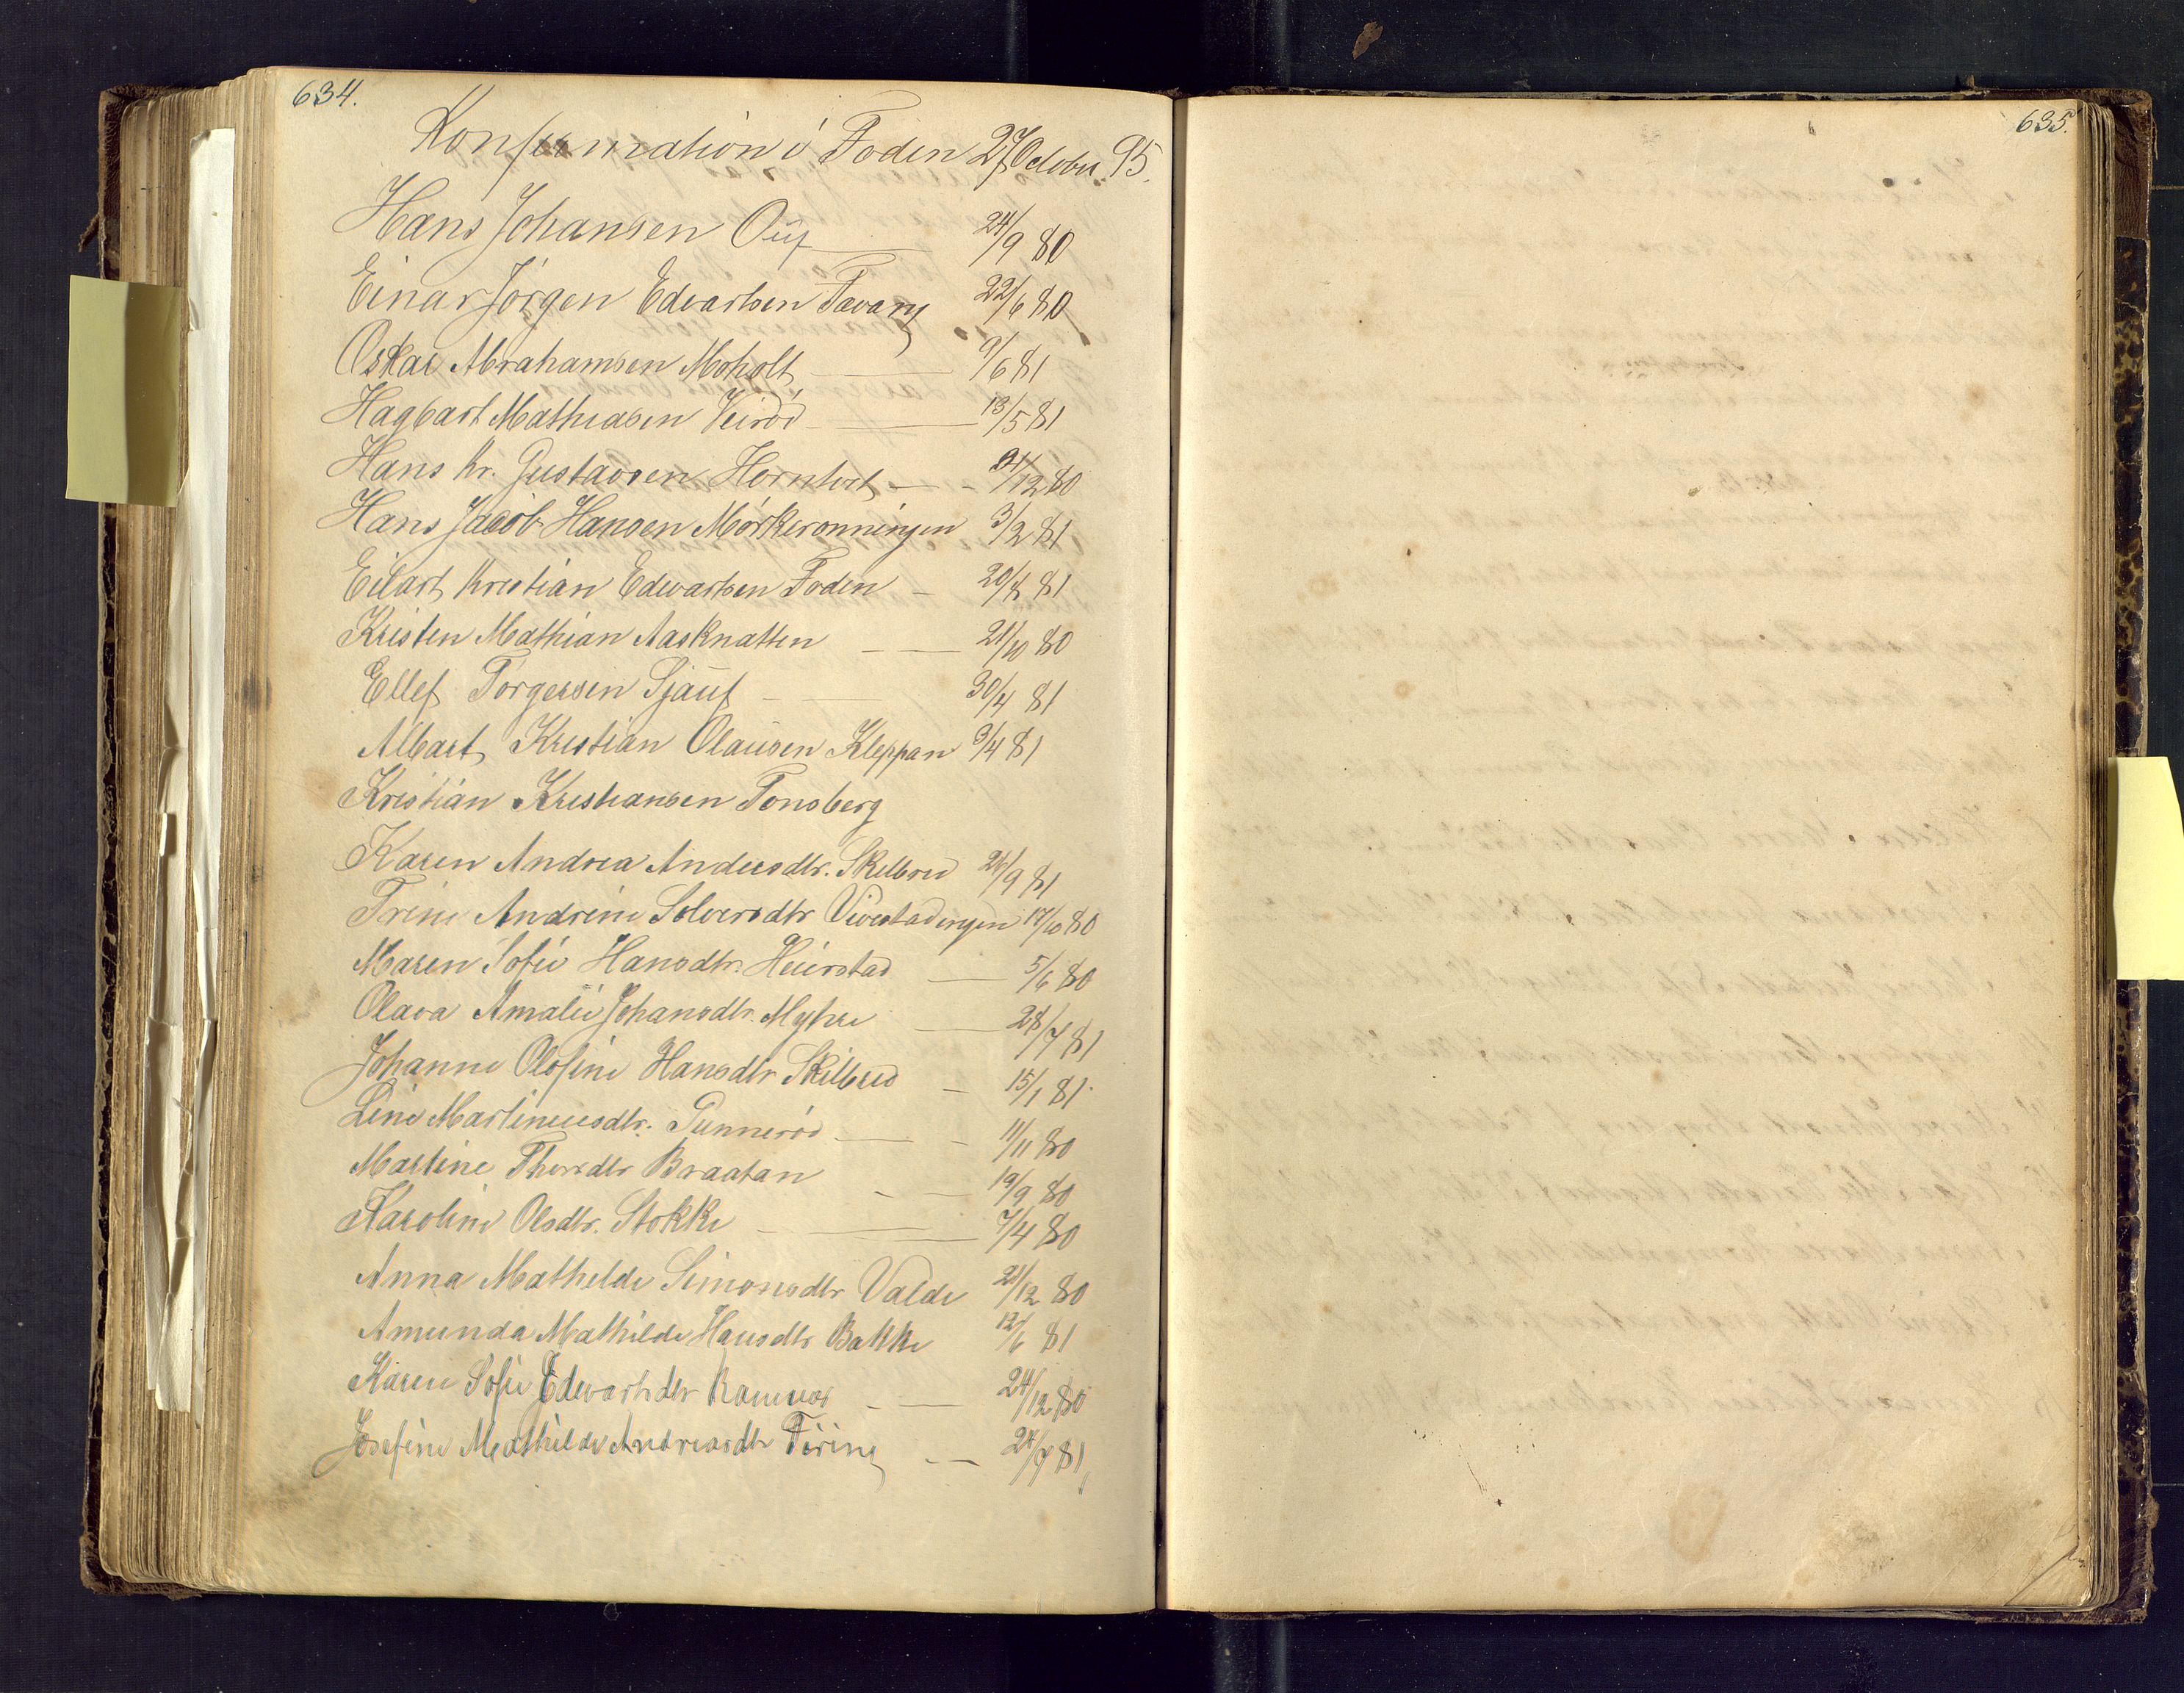 634.
Konfirmation i Foden 27 October 95.
Hans Johansen Ouf 24/9 80
Einar Jörgen Edvartsen Tavang 22/6 80
Oskar Abrahamsen Moholt 9/6 81
Hagbart Mathiasen Veirød 13/5 81
Hans Kr. Gustavsen Horntvet 24/12 80
Hans Jacob Hansen Mørkeronningen 3/2 81
Eilart Kristian Edvartsen Foden 20/8 81
Kristen Mathian Aasknatten 21/10 80
Ellef Torgersen Sjauf 30/4 81
Albart Kristian Olausen Kleppan 3/4 81
Kristian Kristiansen Tonsberg
Karen Andrea Andersdtr. Skilbred 26/9 81
Trine Andrine Solversdtr Vivestadengen 17/10 80
Maren Sofie Hansdtr. Heierstad 5/6 80
Olava Amalie Johansdtr. Myhre 28/7 81
Johanne Olofine Hansdtr Skilbred 15/1 81.
Line Martineusdtr. Gunnerød 11/11 80
Martine Thorsdtr Braatan 19/9 80
Karoline Olsdtr. Stokke 7/4 80
Anna Mathilde Simonsdtr Valde 21/12 80
Amunda Mathilde Hansdtr Bakke 12/6 81
Karen Sofie Edvartsdtr 24/12 80
Josefine Mathilde Andreasdtr 24/9 81
635.